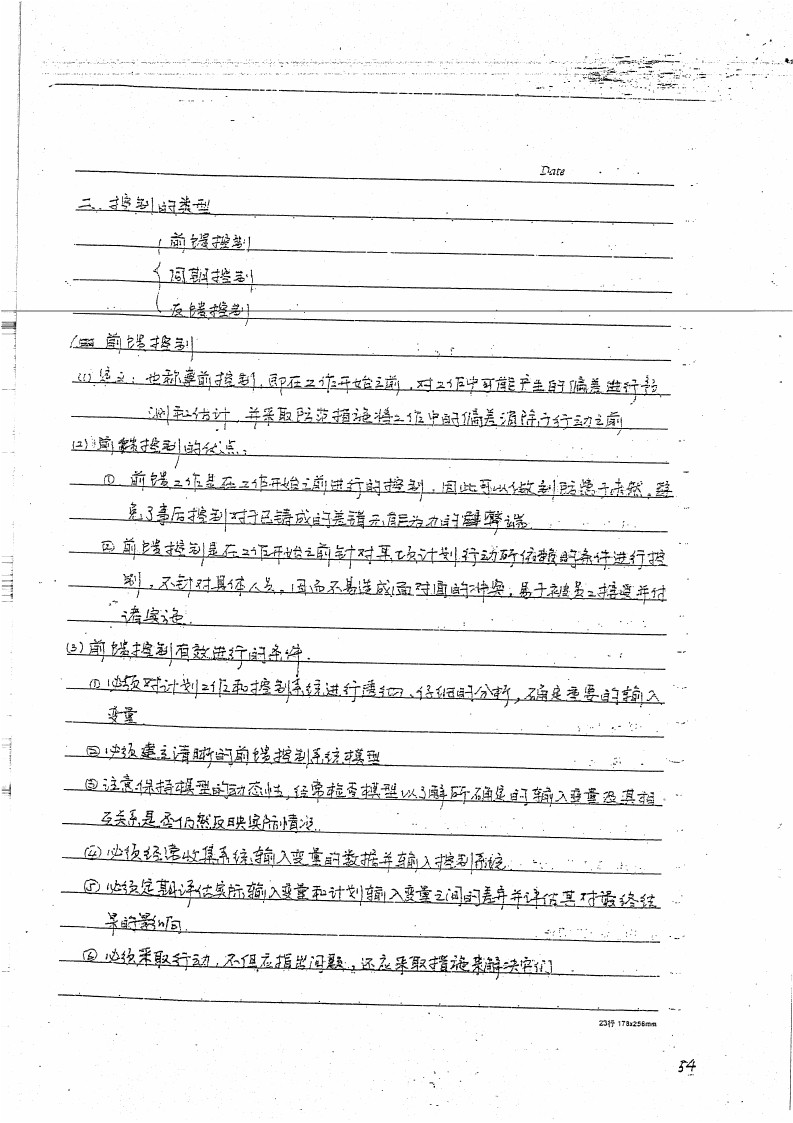 Date
二、控制的类型
前馈控制
同期控制
反馈控制
前馈控制
(1) 定义:也称事前控制,即在工作开始之前,对工作中可能产生的偏差进行预
测和估计,并采取防范措施将工作中的偏差消除于行动之前
(2) 前馈控制的优点:
① 前馈工作是在工作开始之前进行的控制,因此可以做到防患于未然,避
免了事后控制对于已铸成的差错无能为力的弊端.
② 前馈控制是在工作开始之前针对某项计划行动所依赖的条件进行控
制,不针对具体人员,因而不易造成面对面的冲突,易于被员工接受并付
诸实施.
(3) 前馈控制有效进行的条件.
① 必须对计划工作和控制系统进行透彻、仔细的分析,确定重要的输入
变量
② 必须建立清晰的前馈控制系统模型
③ 注意保持模型的动态性,经常检查模型以了解所确定的输入变量及其相
互关系是否仍然反映实际情况.
④ 必须经常收集系统输入变量的数据并输入控制系统.
⑤ 必须定期评估实际输入变量和计划输入变量之间的差异并评估其对最终结
果的影响.
⑥ 必须采取行动,不但应指出问题,还应采取措施来解决它们
23行 178x256mm
54